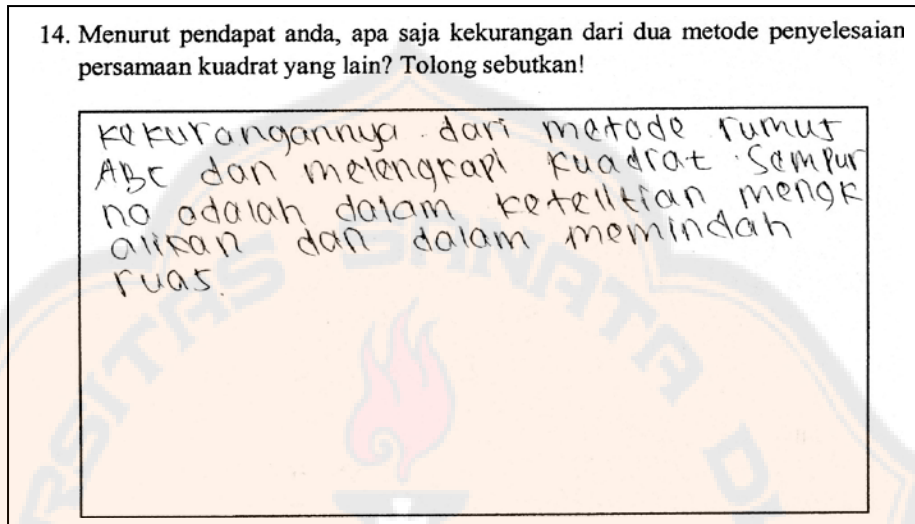 14. Menurut pendapat anda, apa saja kekurangan dari dua metode penyelesaian
persamaan kuadrat yang lain? Tolong sebutkan!
kekurangannya dari metode rumus
ABC dan melengkapi kuadrat Sempur
na adalah dalam ketelitian mengk
alikan dan dalam memindah
ruas.
RSITAS SANATA D